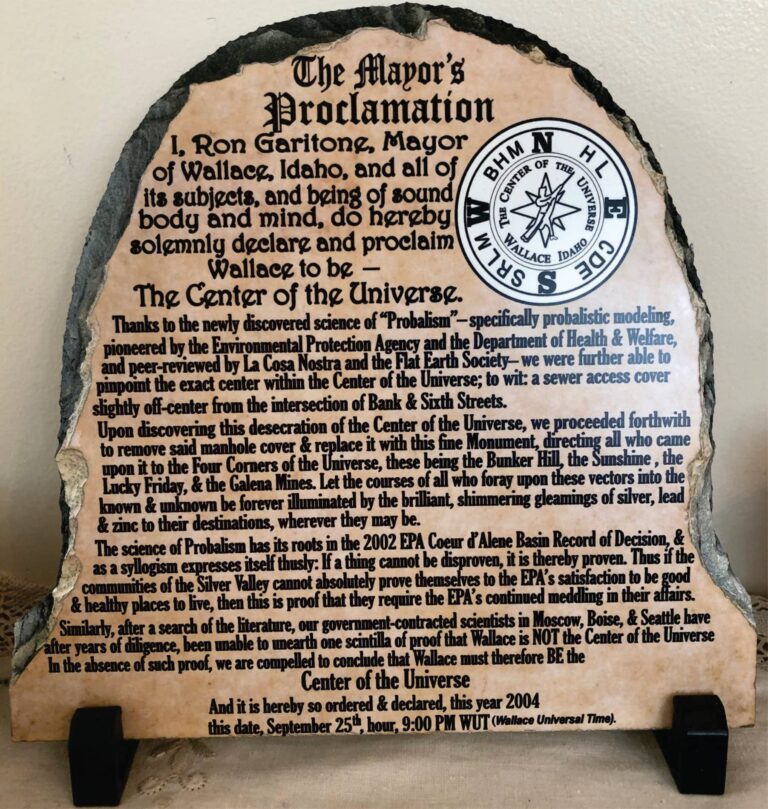 The Mayor's
Proclamation
I, Ron Garitone, Mayor
of Wallace, Idaho, and all of
its subjects, and being of sound
body and mind, do hereby
solemnly declare and proclaim
Wallace to be –
The Center of the Universe.
N
E
S
W
BHM
HL
CDE
SRLM
THE CENTER OF THE UNIVERSE
WALLACE IDAHO
Thanks to the newly discovered science of “Probalism”– specifically probalistic modeling,
pioneered by the Environmental Protection Agency and the Department of Health & Welfare,
and peer-reviewed by La Cosa Nostra and the Flat Earth Society– we were further able to
pinpoint the exact center within the Center of the Universe; to wit: a sewer access cover
slightly off-center from the intersection of Bank & Sixth Streets.
Upon discovering this desecration of the Center of the Universe, we proceeded forthwith
to remove said manhole cover & replace it with this fine Monument, directing all who came
upon it to the Four Corners of the Universe, these being the Bunker Hill, the Sunshine , the
Lucky Friday, & the Galena Mines. Let the courses of all who foray upon these vectors into the
known & unknown be forever illuminated by the brilliant, shimmering gleamings of silver, lead
& zinc to their destinations, wherever they may be.
The science of Probalism has its roots in the 2002 EPA Coeur d'Alene Basin Record of Decision, &
as a syllogism expresses itself thusly: If a thing cannot be disproven, it is thereby proven. Thus if the
communities of the Silver Valley cannot absolutely prove themselves to the EPA's satisfaction to be good
& healthy places to live, then this is proof that they require the EPA's continued meddling in their affairs.
Similarly, after a search of the literature, our government-contracted scientists in Moscow, Boise, & Seattle have
after years of diligence, been unable to unearth one scintilla of proof that Wallace is NOT the Center of the Universe
In the absence of such proof, we are compelled to conclude that Wallace must therefore BE the
Center of the Universe
And it is hereby so ordered & declared, this year 2004
this date, September 25th, hour, 9:00 PM WUT (Wallace Universal Time).